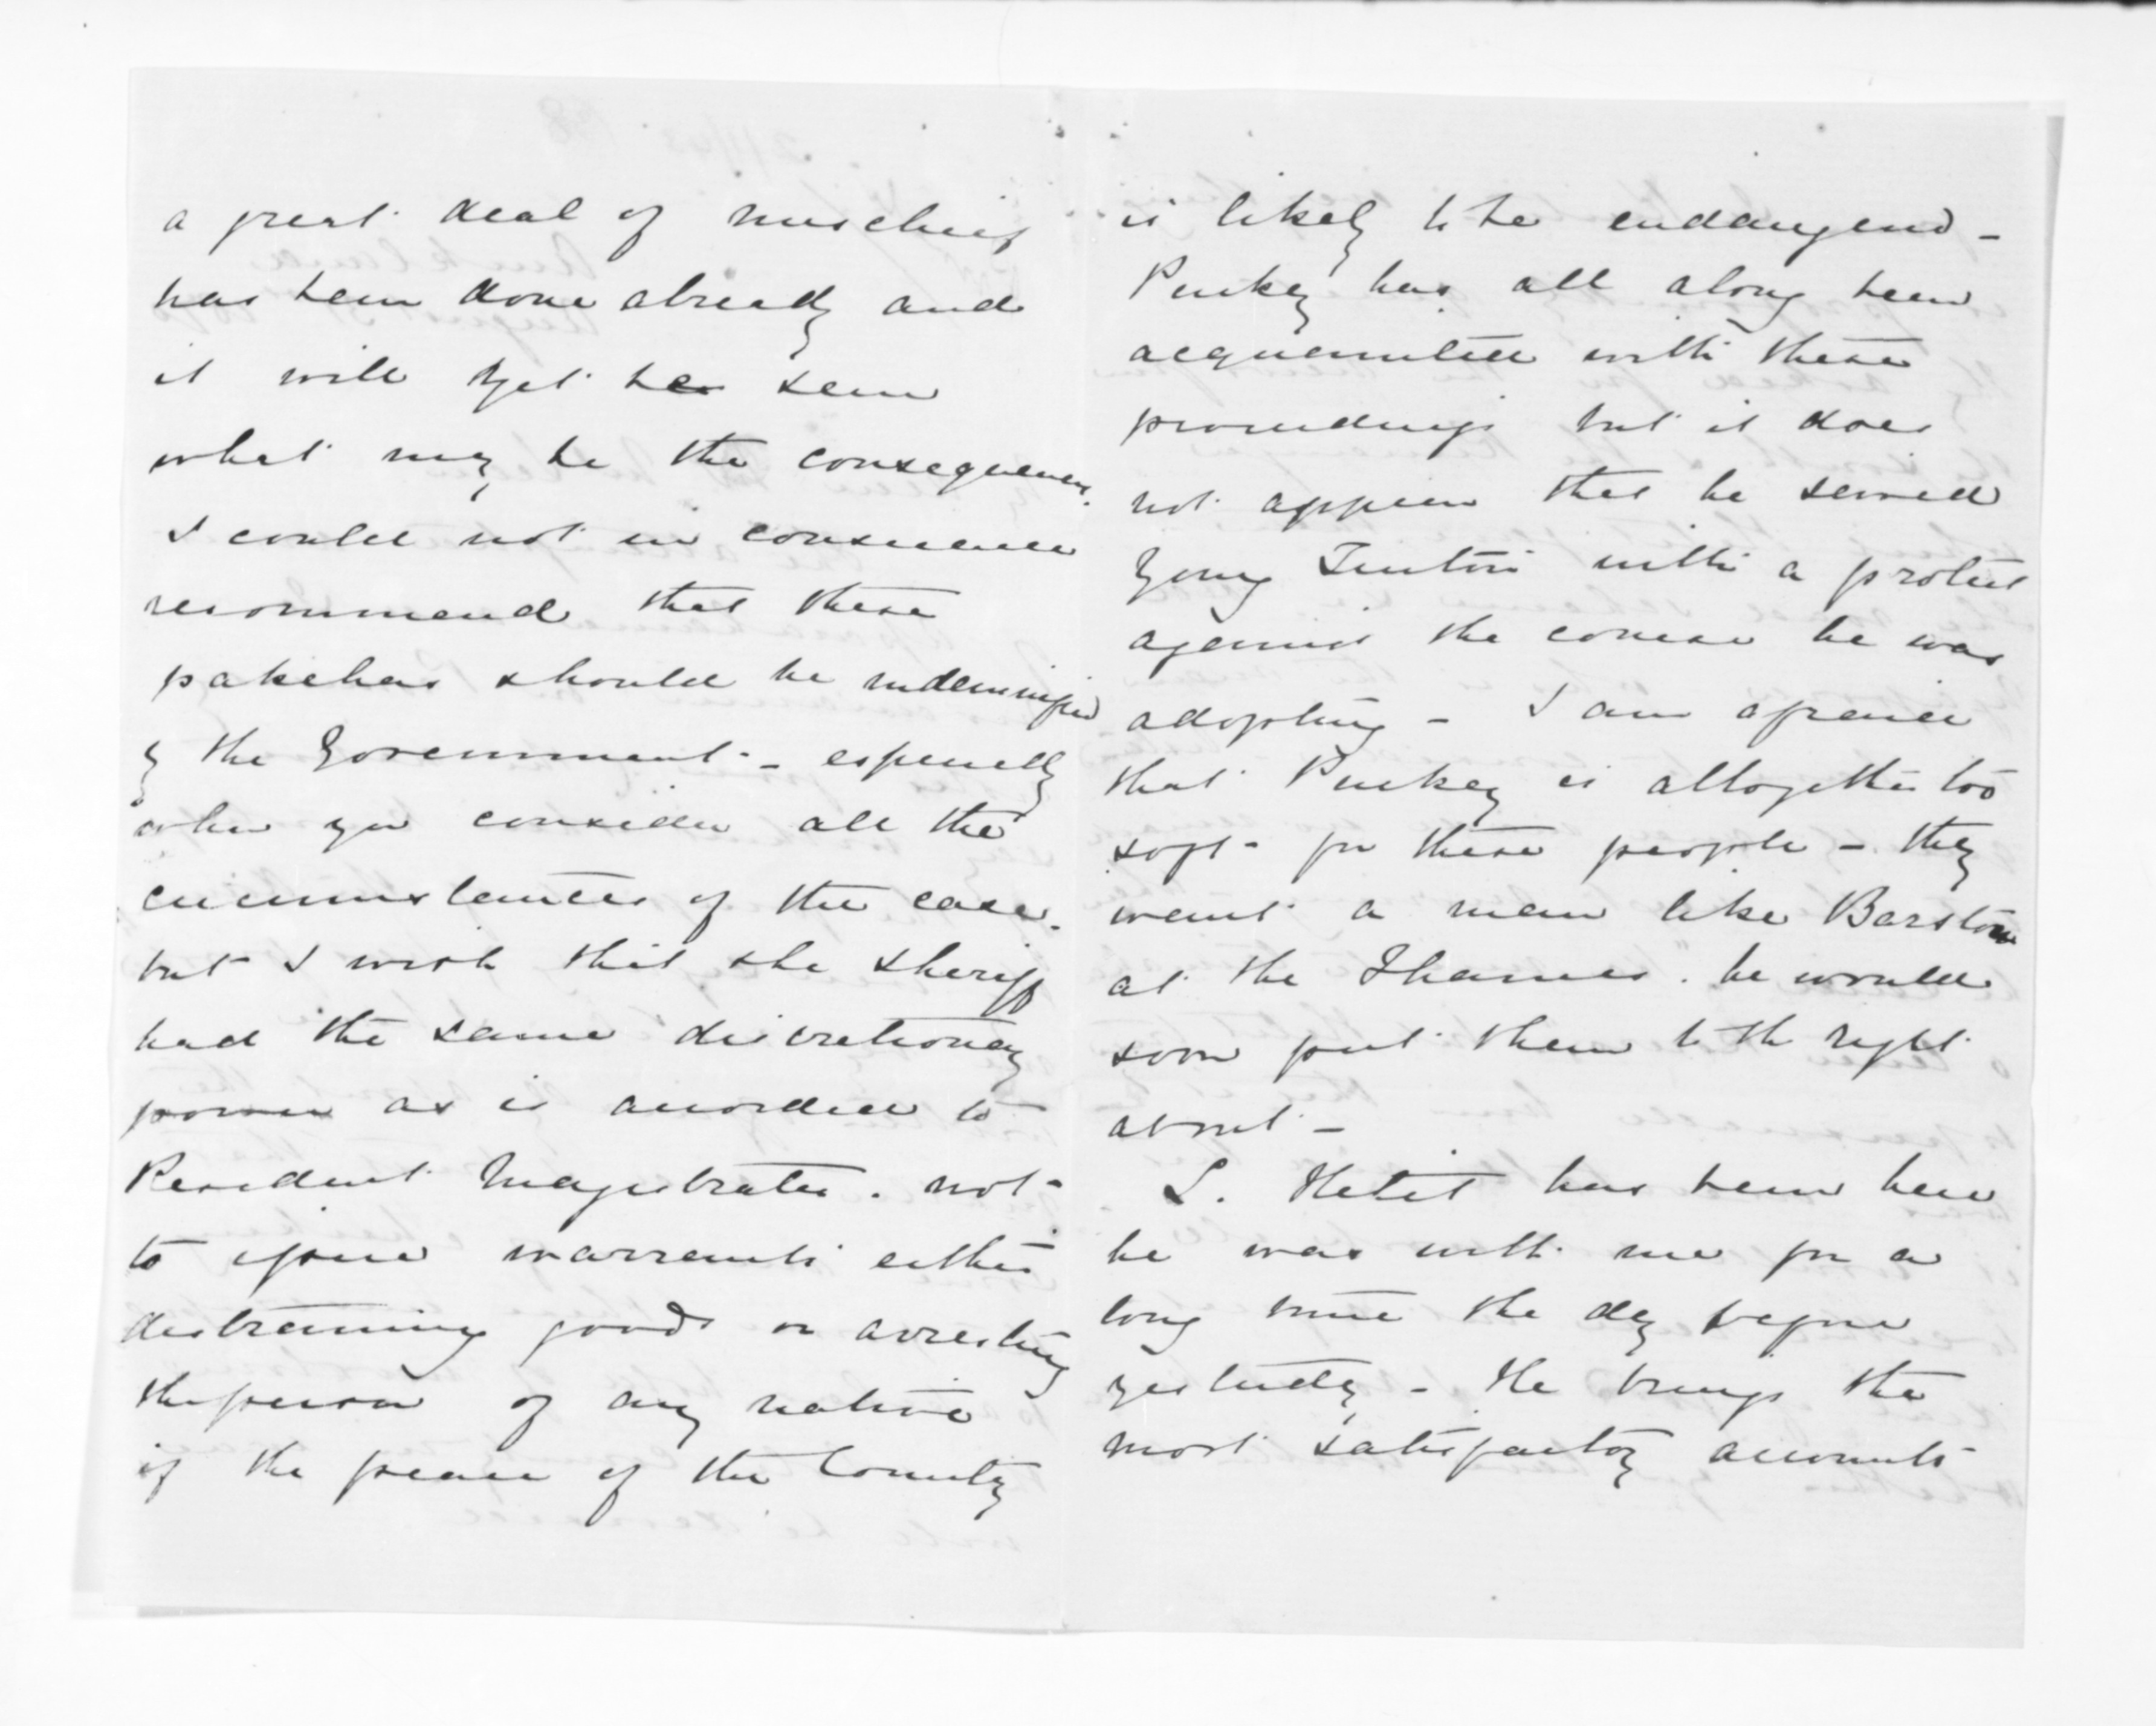 a great deal of mischief
has been done already and
it will yet be seen
what may be the consequences.
I could not in conscience
recommend that these
pakehas should be indemnified
by the Government - especially
when you consider all the
circumstances of the case.
but I wish that the sheriff
had the same discretionary
power as is accorded to
Resident Magistrates. not
to issue warrants either
distraining goods or arresting
the person of any native
if the peace of the County
is likely to be endangered -
Puckey has all along been
acquainted with these
proceedings but it does
not appear that he served
young Tinton with a protest
against the course he was
adopting - I am afraid
that Puckey is altogether too
soft for these people - they
want a man like Barstow
at the Thames. he would
soon put them to th right
about -
L. Hetit has been here
he was with me for a
long time the day before
yesterday - He brings the
most satisfactory accounts